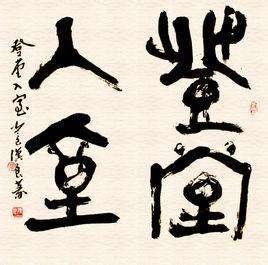 登堂
入室
登堂入室 漢良